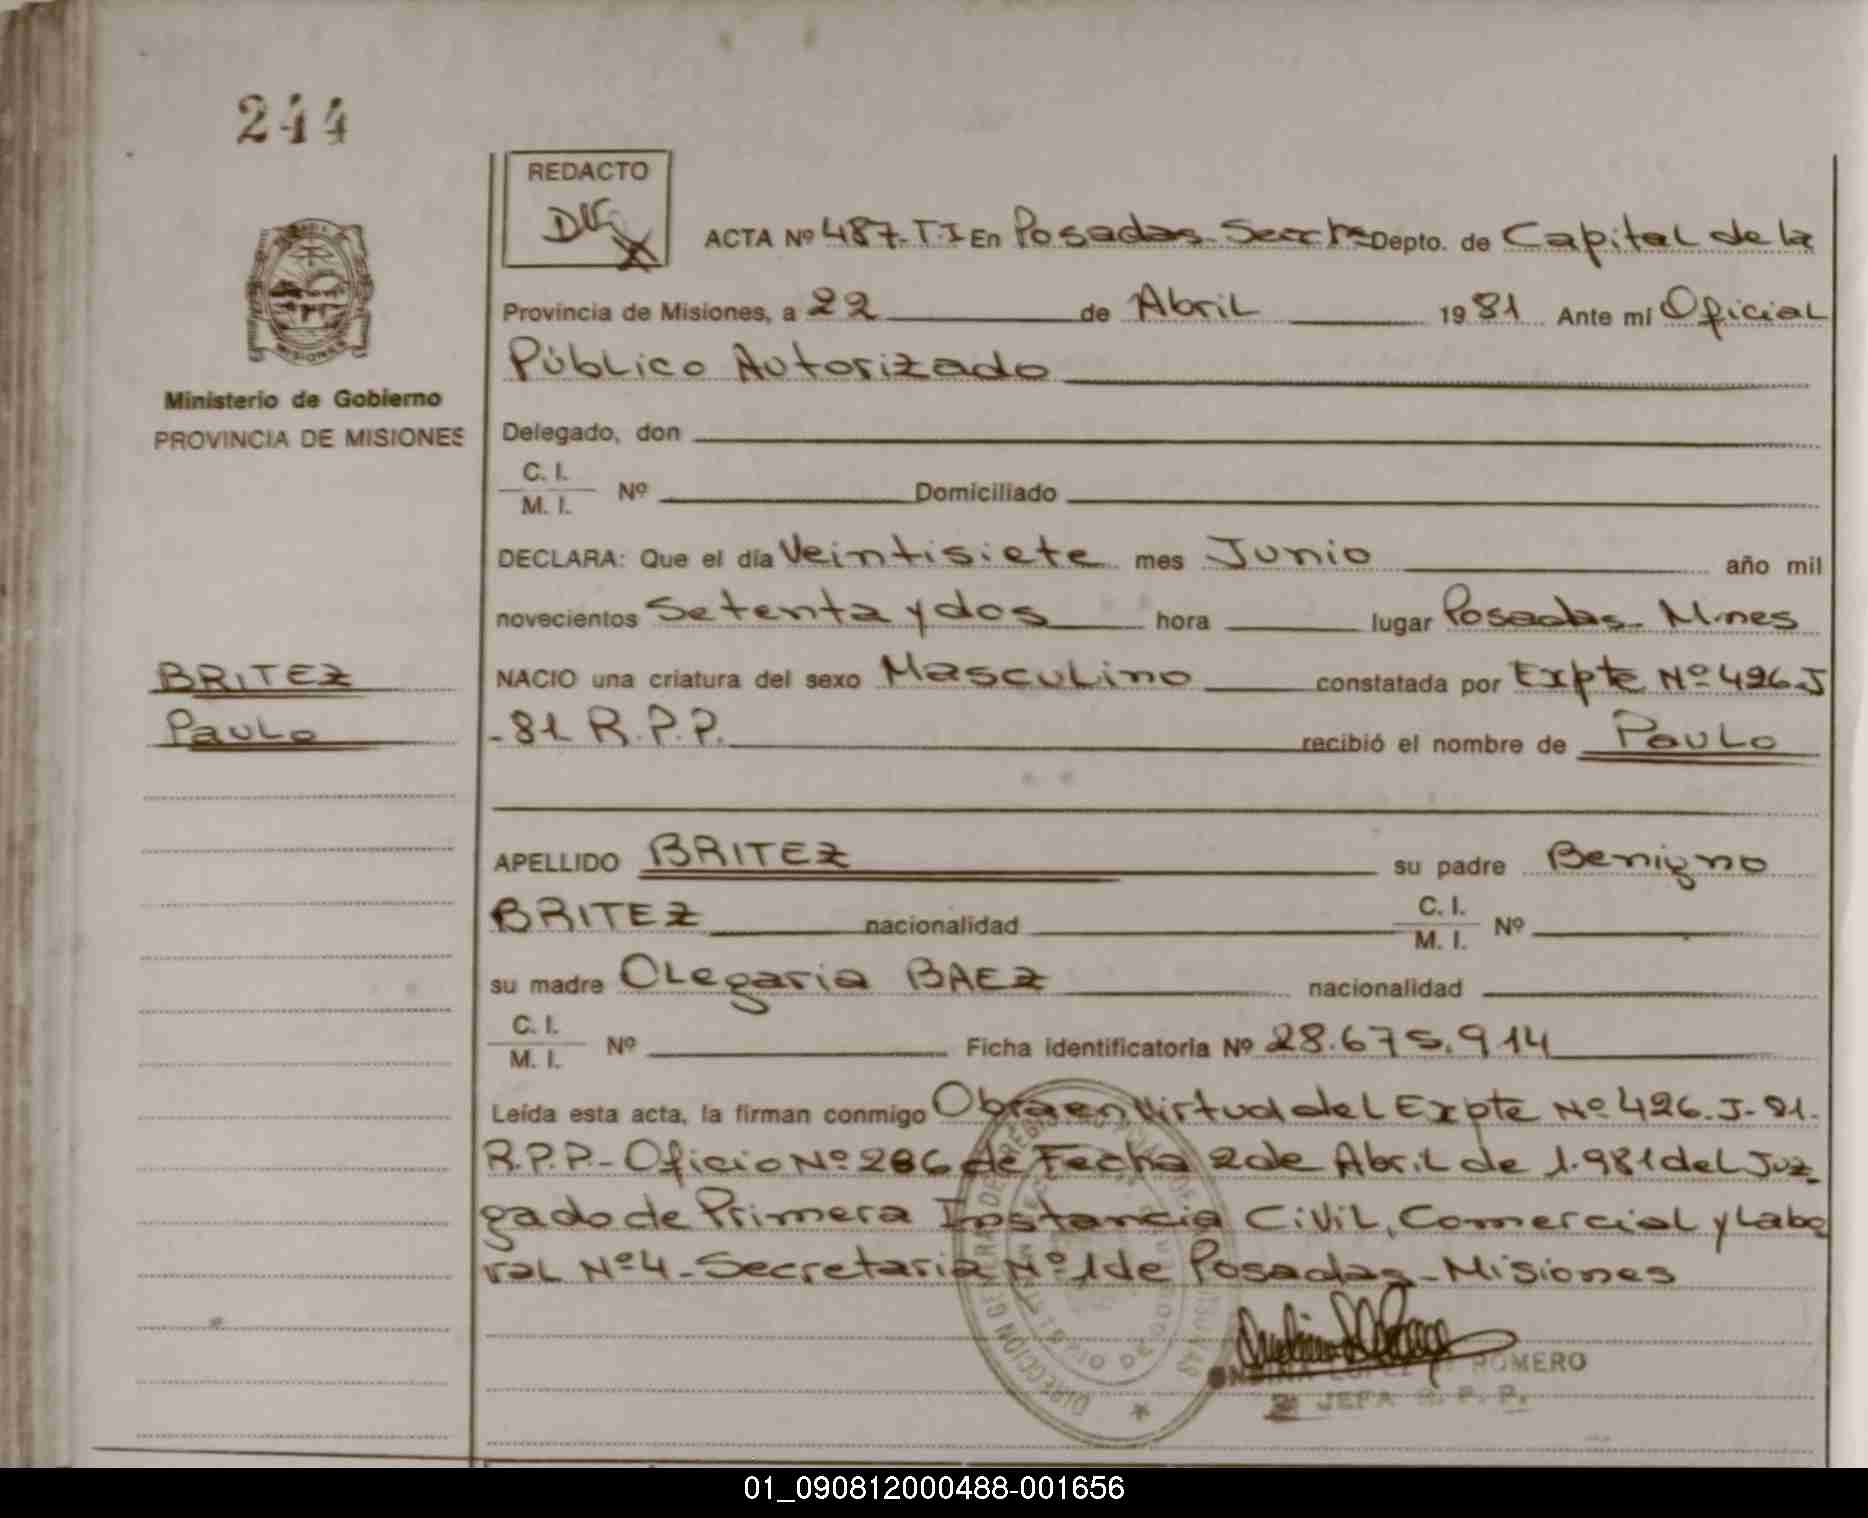 244
REDACTO
ACTA Nº 487-TI En Posadas-Secc 1ª Depto. de Capital de la
Provincia de Misiones, a 22 de Abril 1981 Ante mi Oficial
Público Autorizado
Ministerio de Gobierno
PROVINCIA DE MISIONES
Delegado, don
C. I.
M. I. Nº Domiciliado
DECLARA: Que el día Veintisiete mes Junio año mil
novecientos Setenta y dos hora lugar Posadas- M.nes
BRITEZ
Paulo
NACIO una criatura del sexo Masculino constatada por Expte Nº 426-J
-81 R.P.P. recibió el nombre de Paulo
APELLIDO BRITEZ su padre Benigno
BRITEZ nacionalidad C. I. M. I. Nº
su madre Olegaria BAEZ nacionalidad
C. I.
M. I. Nº Ficha identificatoria Nº 28.675.914
Leída esta acta, la firman conmigo Obra en virtud del Expte Nº 426-J-81.
R.P.P.- Oficio Nº 286 de Fecha 2 de Abril de 1.981 del Juz-
gado de Primera Instancia Civil, Comercial y Labo
ral Nº 4-Secretaria Nº 1 de Posadas-Misiones
LOPEZ ROMERO
JEFA R. P. P.
01_090812000488-001656